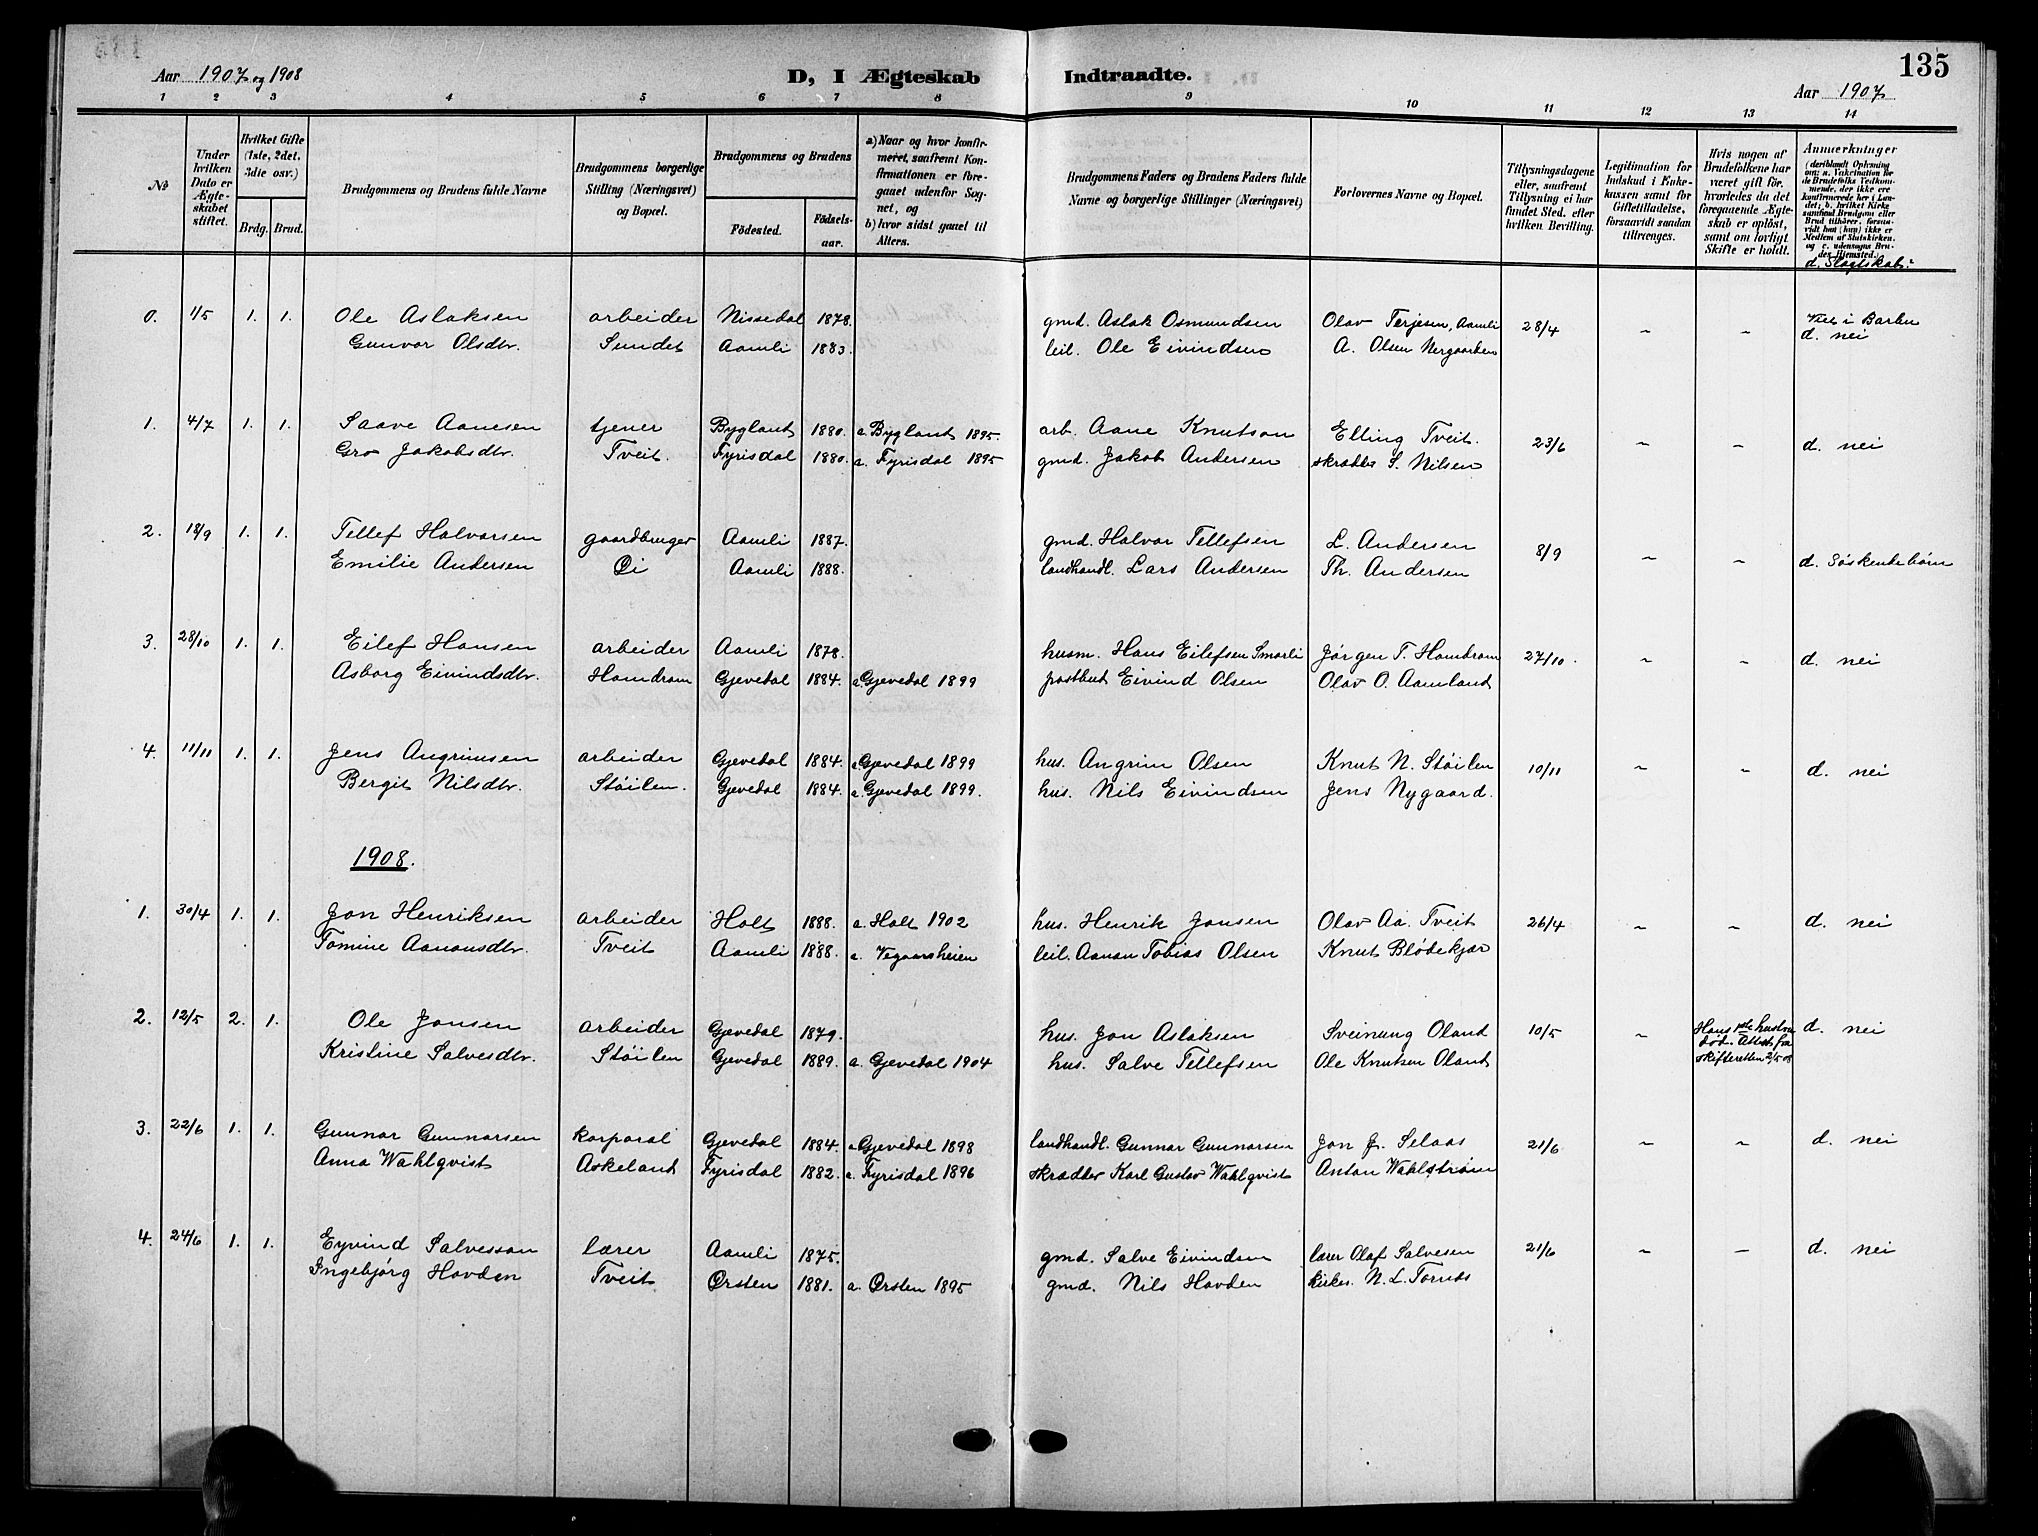 Aar 1907 og 1908
D, I Ægteskab Indtraadte.
135
Aar 1907
1 2 3 4 5 6 7 8 9 10 11 12 13 14
No
Under hvilken Dato er Ægteskabet stiftet.
Hvilket Gifte (1ste, 2det, 3die osv.)
Brdg. Brud.
Brudgommens og Brudens fulde Navne
Brudgommens borgerlige Stilling (Næringsvei) og Bopæl.
Brudgommens og Brudens
Födested. Födselsaar.
a) Naar og hvor konfirmeret, saafremt Konfirmationen er foregaaet udenfor Sognet, og
b) hvor sidst gaaet til Alters.
Brudgommens Faders og Brudens Faders fulde Navne og borgerlige Stillinger (Næringsvei)
Forlovernes Navne og Bopæl.
Tillysningsdagene eller, saafremt Tillysning ei har fundet Sted, efter hvilken Bevilling.
Legitimation for Indskud i Enkekassen samt for Giftetilladelse, forsaavidt saadan tiltrænges.
Hvis nogen af Brudefolkene har været gift för, hvorledes da det foregaaende Ægteskab er oplöst, samt om lovligt Skifte er holdt.
Anmærkninger
(deriblandt Oplysning om: a. Vakcination for de Brudefolks Vedkommende, der ikke ere konfirmerede her i Landet; b. hvilket Kirkesamfund Brudgom eller Brud tilhörer, forsaavidt han (hun) ikke er Medlem af Statskirken, og c. udensogns Brudes Hjemsted.)
d. Slægtskab:
0. 1/5 1. 1. Ole Aslaksen arbeider Nissedal 1878. gmd. Aslak Osmundsen Olav Terjesen, Aamli 28/4 ~ ~ Viet i Barbu
Gunvor Olsdtr. Sundet Aamli 1883. leil. Ole Eivindsen A. Olsen Nergaarden d. nei
1. 4/7 1. 1. Saave Aanesen tjener Bygland 1880. a. Bygland 1895. arb. Aane Knutson Elling Tveit. 23/6 ~ ~ d. nei
Gro Jakobsdtr. Tveit. Fyrisdal 1880. a. Fyrisdal 1895 gmd. Jakob Andersen skrædder S. Nilsen
2. 18/9 1. 1. Tellef Halvorsen gaardbruger Aamli 1887. gmd. Halvor Tellefsen L. Andersen 8/9 ~ ~ d. Søskendebørn
Emilie Andersen Øi Aamli 1888. landhandl. Lars Andersen Th. Andersen
3. 28/10 1. 1. Eilef Hansen arbeider Aamli 1878. husm. Hans Eilefsen Smørli Jørgen T. Homdrom 27/10. ~ ~ d. nei
Asborg Eivindsdtr. Homdrom Gjevedal 1884. a. Gjevedal 1899 postbud Eivind Olsen Olav O. Aamland
4. 11/11 1. 1. Jens Angrimsen arbeider Gjevedal 1884. a. Gjevedal 1899 hus. Angrim Olsen Knut N. Støilen 10/11 ~ ~ d. nei
Bergit Nilsdtr. Støilen. Gjevedal 1884. a. Gjevedal 1899. hus. Nils Eivindsen Jens Nygaard.
1908.
1. 30/4 1. 1. Jon Henriksen arbeider Holt 1888. a. Holt 1902 hus. Henrik Jonsen Olav Aa. Tveit 26/4 ~ ~ d. nei
Tomine Aanonsdtr. Tveit Aamli 1888. a. Vegaarsheien leil. Aanon Tobias Olsen Knut Blødekjær
2. 12/5 2. 1. Ole Jonsen arbeider Gjevedal 1879. hus. Jon Aslaksen Sveinung Oland 10/5 ~ Hans 1ste hustru død. Attest fra skifteretten 2/5 08 d. nei
Kristine Salvesdtr. Støilen Gjevedal 1889. a. Gjevedal 1904 hus. Salve Tellefsen Ole Knutsen Oland
3. 22/6 1. 1. Gunnar Gunnarsen korporal Gjevedal 1884. a. Gjevedal 1898 landhandl. Gunnar Gunnarsen Jon J. Selaas 21/6 ~ ~ d. nei
Anna Wahlqvist Askeland Fyrisdal 1882. a. Fyrisdal 1896 skrædder Karl Gustav Wahlqvist Anton Wahlstrøm
4. 24/6 1. 1. Eyvind Salvesson lærer Aamli 1875. gmd. Salve Eivindsen lærer Olaf Salvesen 21/6 ~ – d. nei
Ingebjørg Hovden Tveit Ørsten 1881. a. Ørsten 1895 gmd. Nils Hovden kirkes. N. L. Tornes